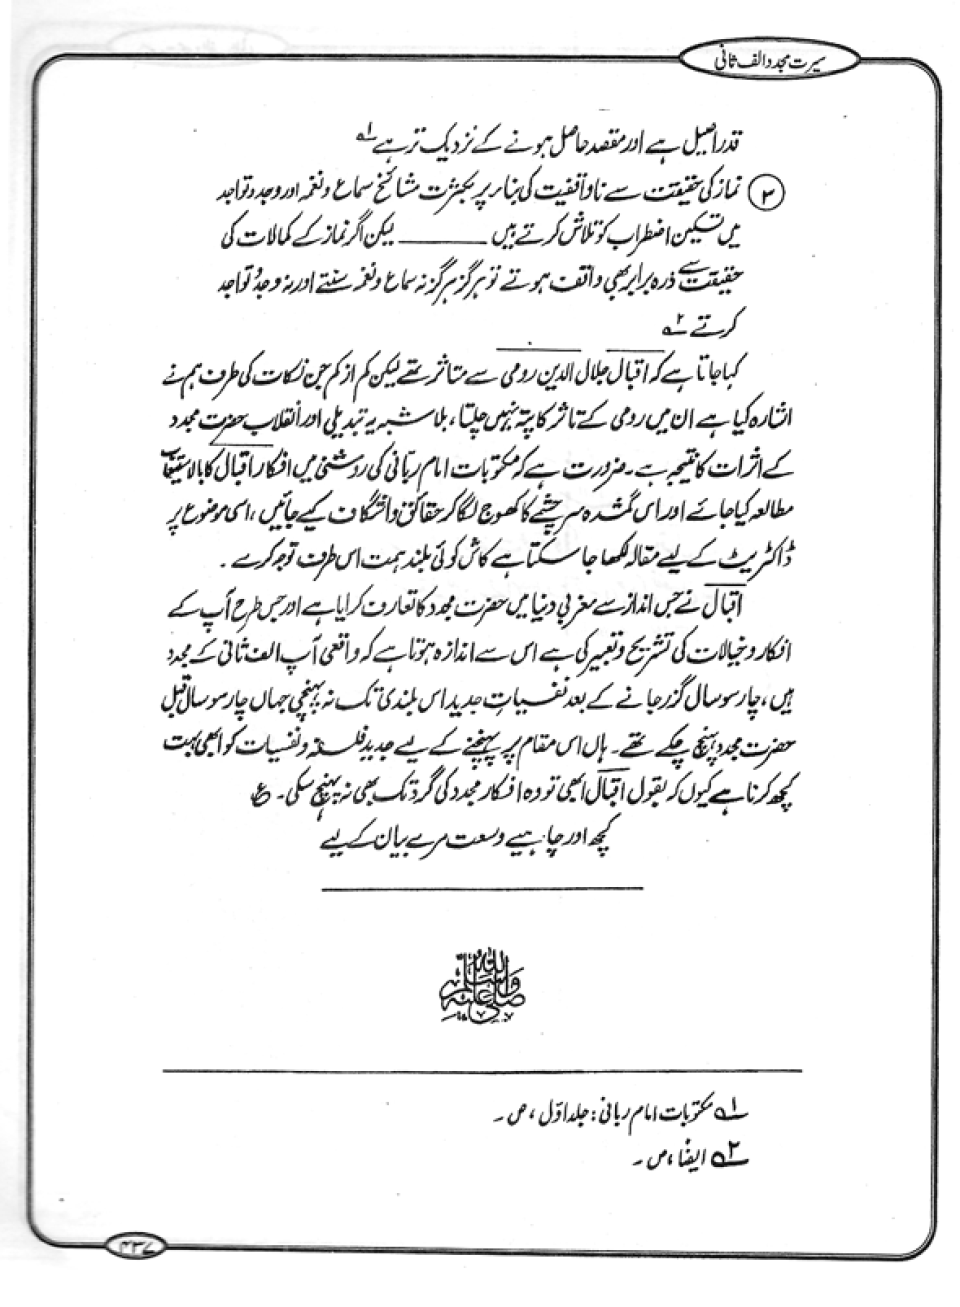 سیرت مجدد الف ثانی
قدر اصیل ہے اور مقصد حاصل ہونے کے نزدیک تر ہے ۱؎
۳ نماز کی حقیقت سے ناواقفیت کی بنا پر بکثرت مشائخ سماع و نغمہ اور وجد و تواجد
میں تسکین اضطراب کو تلاش کرتے ہیں ______ لیکن اگر نماز کے کمالات کی
حقیقت سے ذرہ برابر بھی واقف ہوتے تو ہرگز ہرگز نہ سماع و نغمہ سنتے اور نہ وجد و تواجد
کرتے ۲؎
کہا جاتا ہے کہ اقبال جلال الدین رومی سے متاثر تھے لیکن کم از کم جن نکات کی طرف ہم نے
اشارہ کیا ہے ان میں رومی کے تاثر کا پتہ نہیں چلتا، بلا شبہ یہ تبدیلی اور انقلاب حضرت مجدد
کے اثرات کا نتیجہ ہے۔ ضرورت ہے کہ مکتوبات امام ربانی کی روشنی میں افکار اقبال کا بالاستیعاب
مطالعہ کیا جائے اور اس گمشدہ سرچشمے کا کھوج لگا کر حقائق واشگاف کیے جائیں، اسی موضوع پر
ڈاکٹریٹ کے لیے مقالہ لکھا جا سکتا ہے کاش کوئی بلند ہمت اس طرف توجہ کرے۔
اقبال نے جس انداز سے مغربی دنیا میں حضرت مجدد کا تعارف کرایا ہے اور جس طرح آپ کے
افکار و خیالات کی تشریح و تعبیر کی ہے اس سے اندازہ ہوتا ہے کہ واقعی آپ الف ثانی کے مجدد
ہیں، چار سو سال گزر جانے کے بعد نفسیات جدید اس بلندی تک نہ پہنچی جہاں چار سو سال قبل
حضرت مجدد پہنچ چکے تھے۔ ہاں اس مقام پر پہنچنے کے لیے جدید فلسفہ و نفسیات کو ابھی بہت
کچھ کرنا ہے کیوں کہ بقول اقبال ابھی تو وہ افکار مجدد کی گرد تک بھی نہ پہنچ سکی۔ ع
کچھ اور چاہیے وسعت مرے بیان کے لیے
صلی اللہ علیہ وسلم
۱؎ مکتوبات امام ربانی: جلد اول، ص۔
۲؎ ایضاً، ص۔
۴۳۷